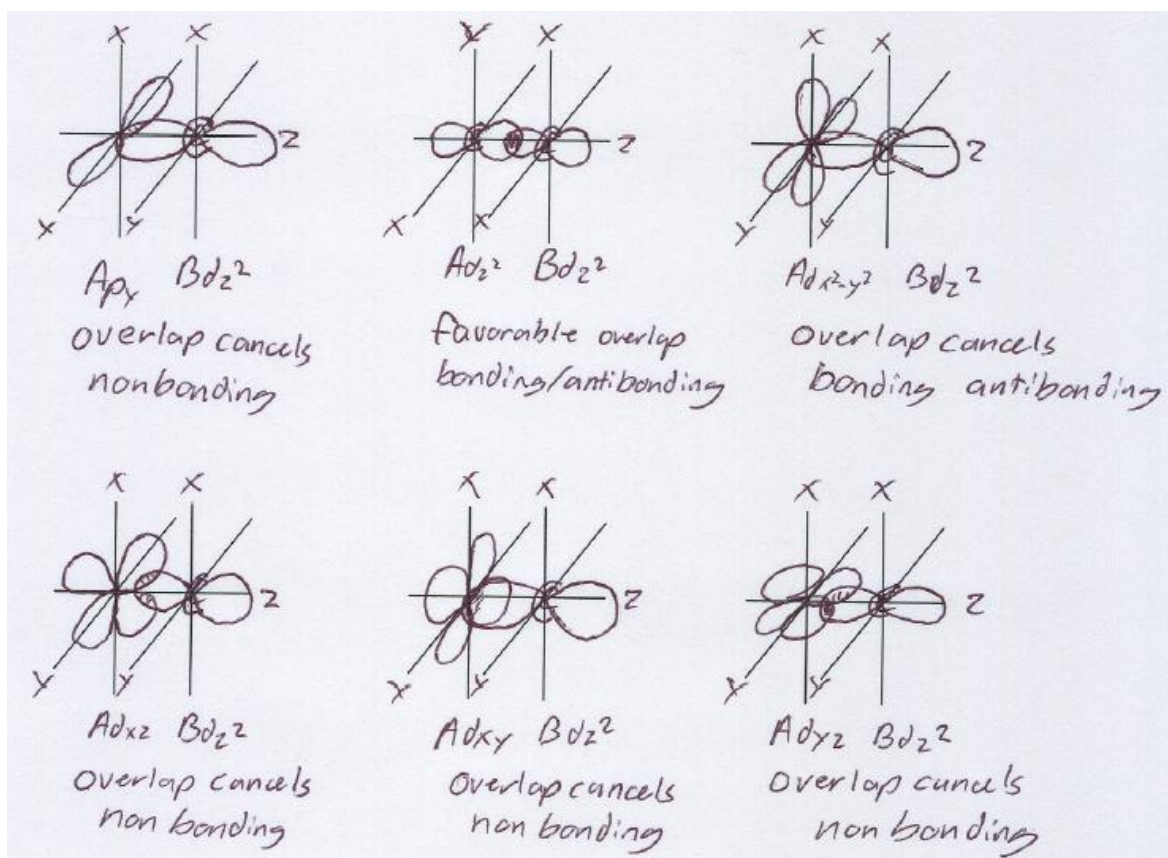 X X
Z
X Y
Apy Bdz²
overlap cancels
nonbonding
X X
Z
X X
Adz² Bdz²
favorable overlap
bonding/antibonding
X X
Z
Y Y
Adx²-y² Bdz²
overlap cancels
bonding antibonding
X X
Z
Y Y
Adxz Bdz²
overlap cancels
non bonding
X X
Z
Y Y
Adxy Bdz²
overlap cancels
non bonding
X X
Z
Y Y
Adyz Bdz²
overlap cancels
non bonding